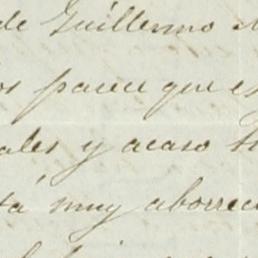 de Guillermo
os parece que es
ales y acaso
tá muy aborreci